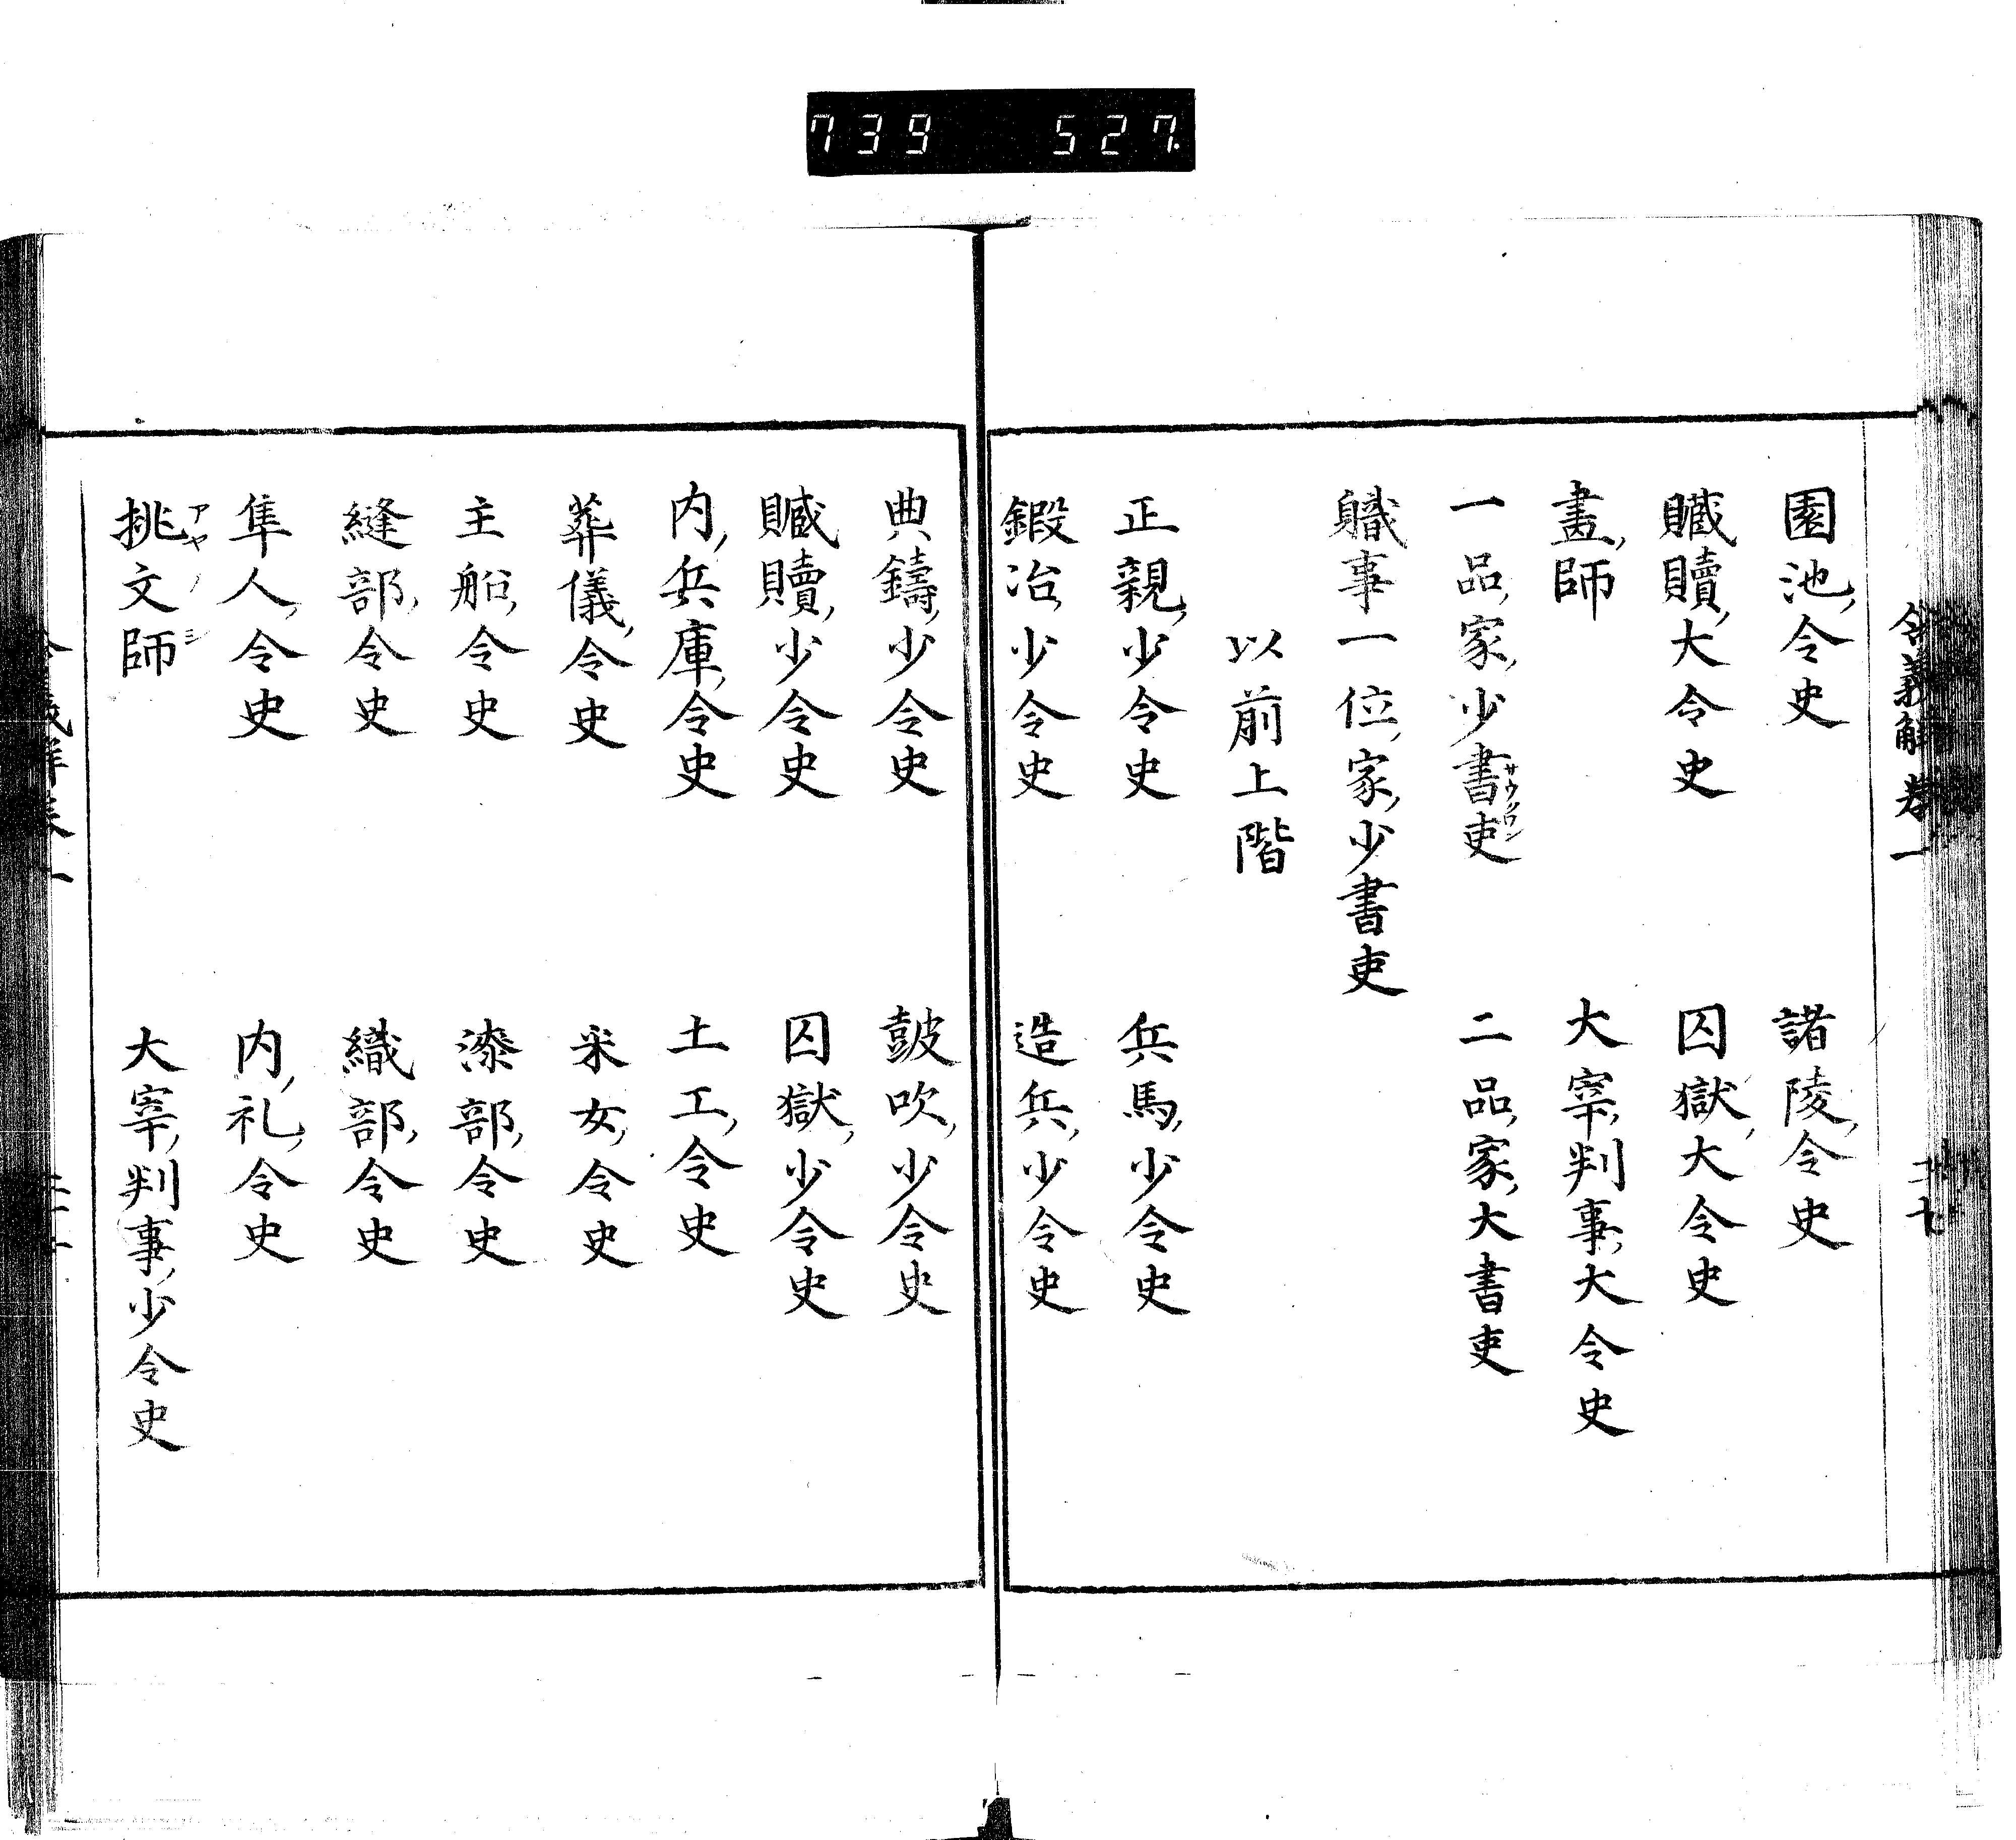 739 527
令義解卷一
園池令史 諸陵令史
贓贖大令史 囚獄大令史
畫師 大宰判事大令史
一品家少書吏 二品家大書吏
軄事一位家少書吏
以前上階
正親少令史 兵馬少令史
鍛冶少令史 造兵少令史
典鑄少令史 皷吹少令史
贓贖少令史 囚獄少令史
内兵庫令史 土工令史
葬儀令史 采女令史
主船令史 漆部令史
縫部令史 織部令史
隼人令史 内礼令史
挑文師 大宰判事少令史
アヤノシ